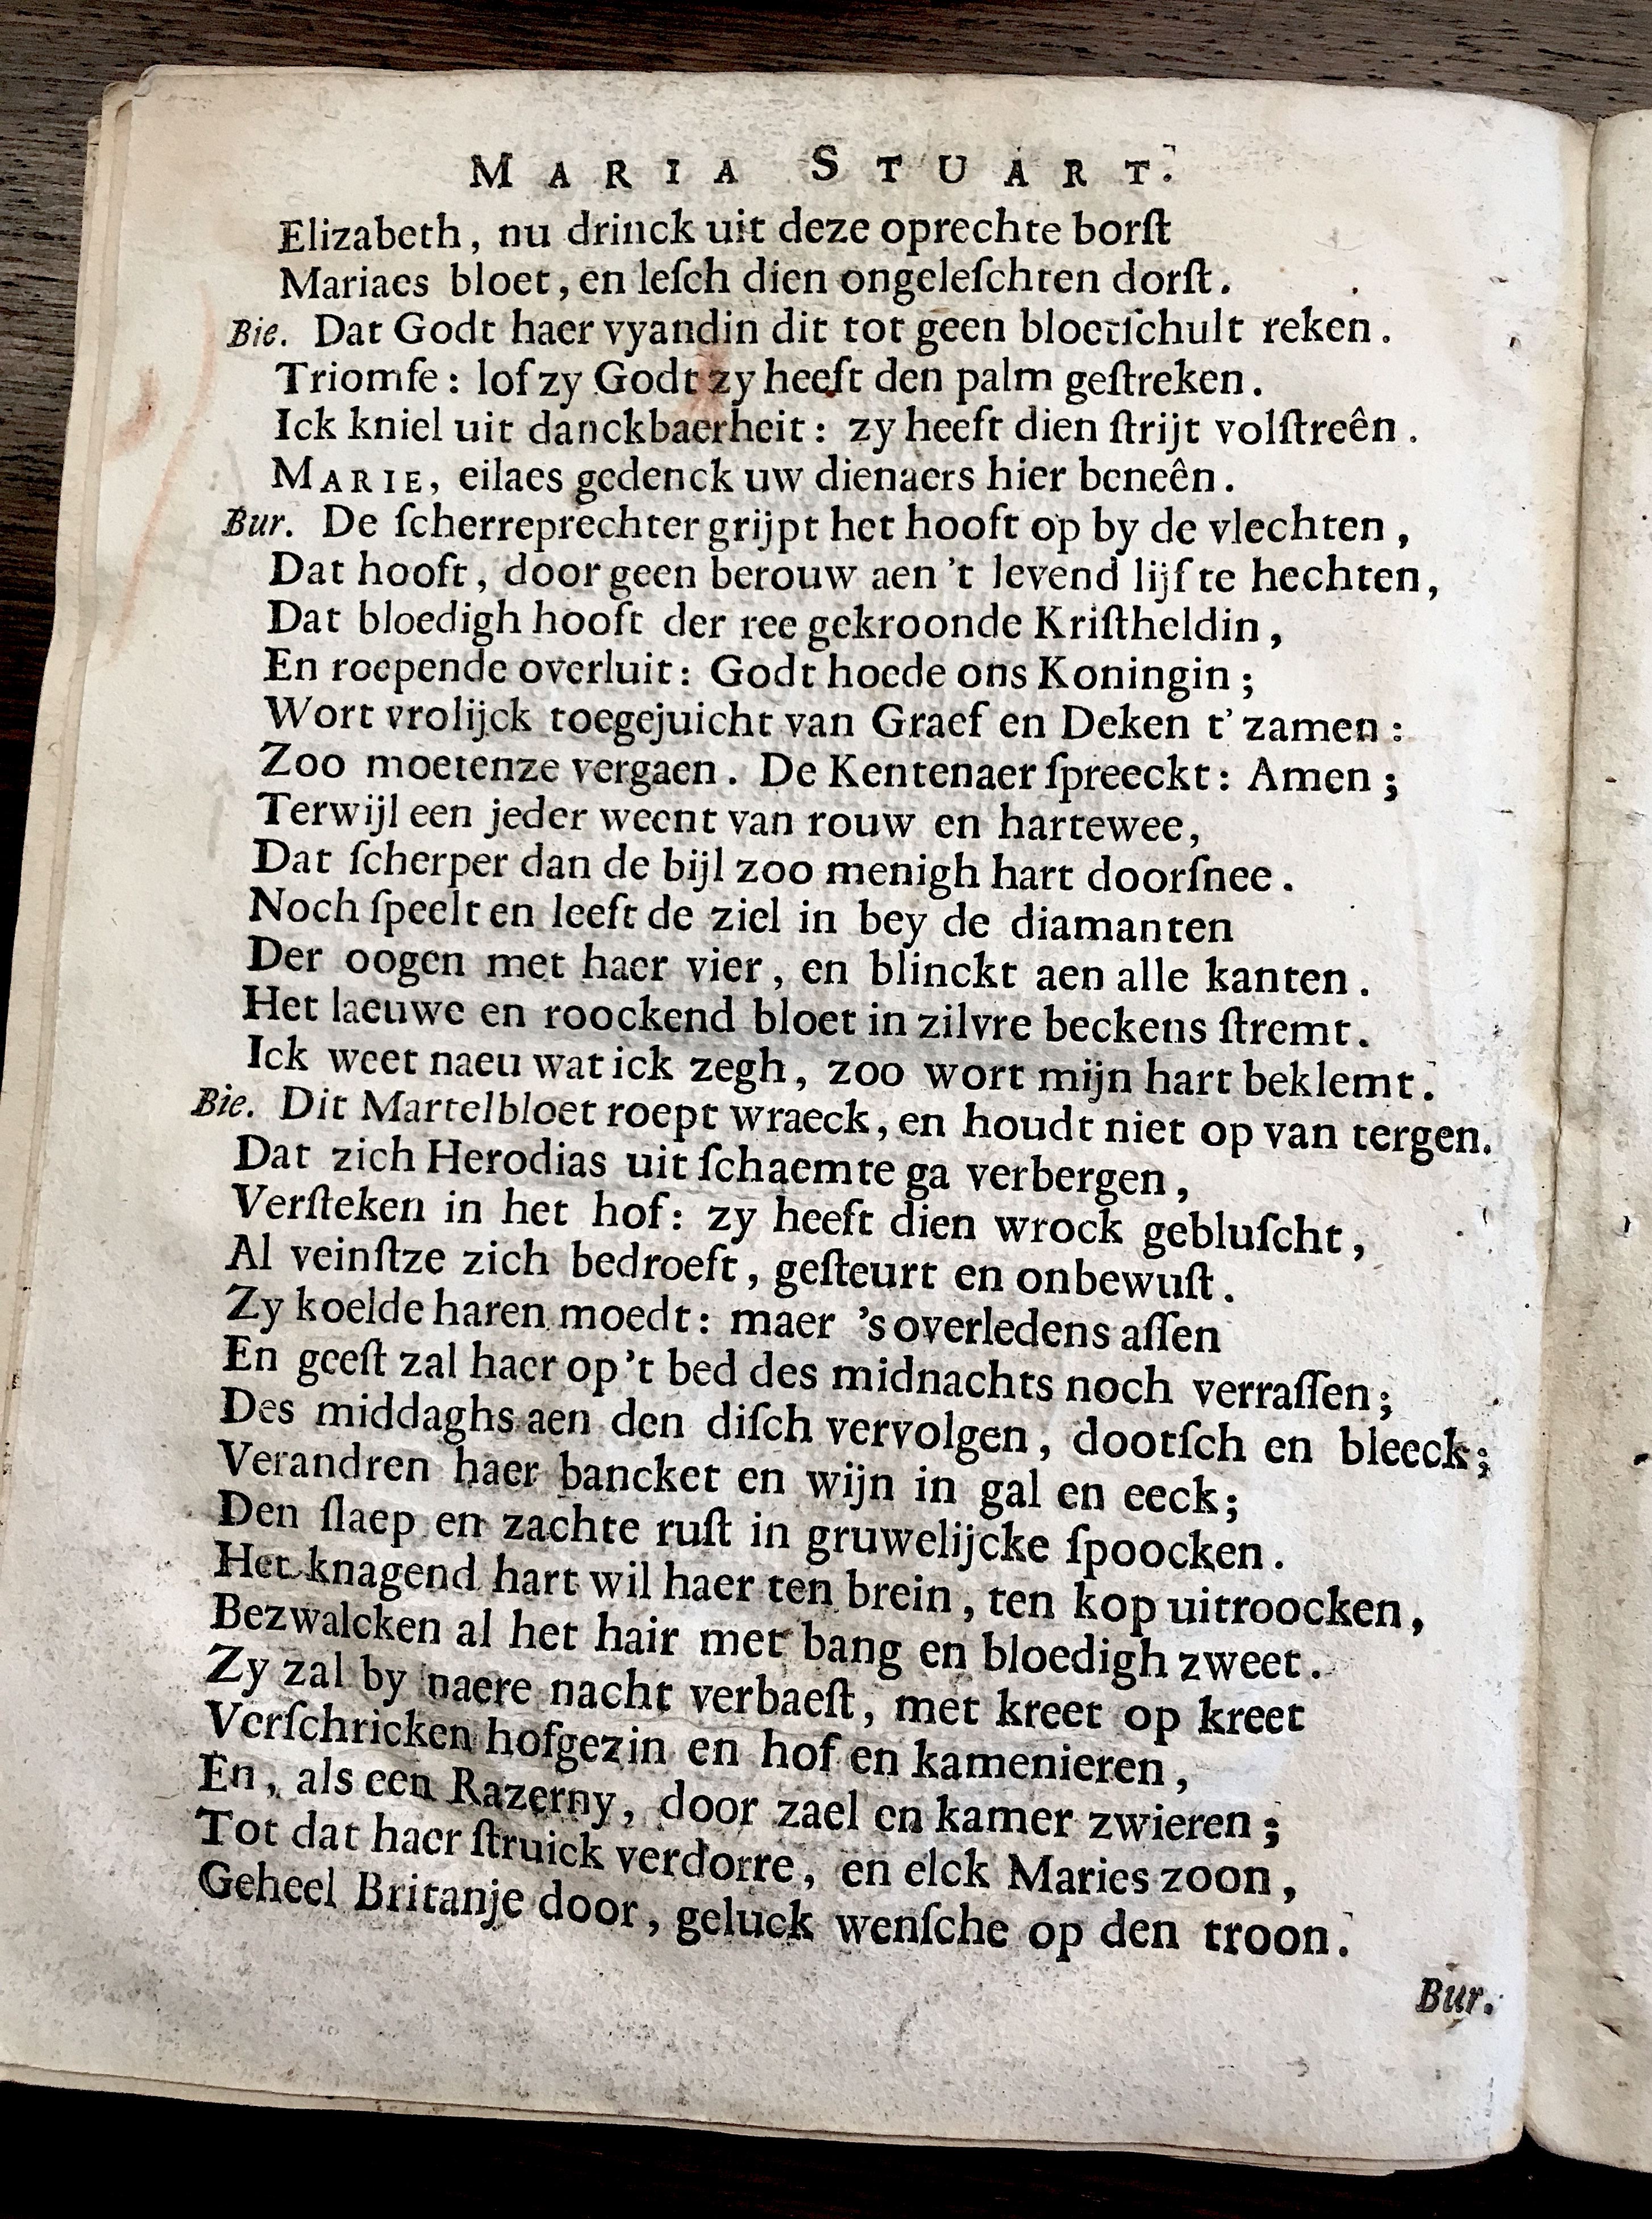 MARIA STUART.
Elizabeth, nu drinck uit deze oprechte borſt
Mariaes bloet, en leſch dien ongeleſchten dorſt.
Bie. Dat Godt haer vyandin dit tot geen bloetſchult reken.
Triomfe: lof zy Godt zy heeft den palm geſtreken.
Ick kniel uit danckbaerheit: zy heeft dien ſtrijt volſtreên.
MARIE, eilaes gedenck uw dienaers hier beneên.
Bur. De ſcherreprechter grijpt het hooft op by de vlechten,
Dat hooft, door geen berouw aen 't levend lijf te hechten,
Dat bloedigh hooft der ree gekroonde Kriſtheldin,
En roepende overluit: Godt hoede ons Koningin;
Wort vrolijck toegejuicht van Graef en Deken t' zamen:
Zoo moetenze vergaen. De Kentenaer ſpreeckt: Amen;
Terwijl een jeder weent van rouw en hartewee,
Dat ſcherper dan de bijl zoo menigh hart doorſnee.
Noch ſpeelt en leeft de ziel in bey de diamanten
Der oogen met haer vier, en blinckt aen alle kanten.
Het laeuwe en roockend bloet in zilvre beckens ſtremt.
Ick weet naeu wat ick zegh, zoo wort mijn hart beklemt.
Bie. Dit Martelbloet roept wraeck, en houdt niet op van tergen.
Dat zich Herodias uit ſchaemte ga verbergen,
Verſteken in het hof: zy heeft dien wrock gebluſcht,
Al veinſtze zich bedroeft, geſteurt en onbewuſt.
Zy koelde haren moedt: maer 's overledens aſſen
En geeſt zal haer op 't bed des midnachts noch verraſſen;
Des middaghs aen den diſch vervolgen, dootſch en bleeck;
Verandren haer bancket en wijn in gal en eeck;
Den ſlaep en zachte ruſt in gruwelijcke ſpoocken.
Het knagend hart wil haer ten brein, ten kop uitroocken,
Bezwalcken al het hair met bang en bloedigh zweet.
Zy zal by naere nacht verbaeſt, met kreet op kreet
Verſchricken hofgezin en hof en kamenieren,
En, als een Razerny, door zael en kamer zwieren;
Tot dat haer ſtruick verdorre, en elck Maries zoon,
Geheel Britanje door, geluck wenſche op den troon.
Bur.